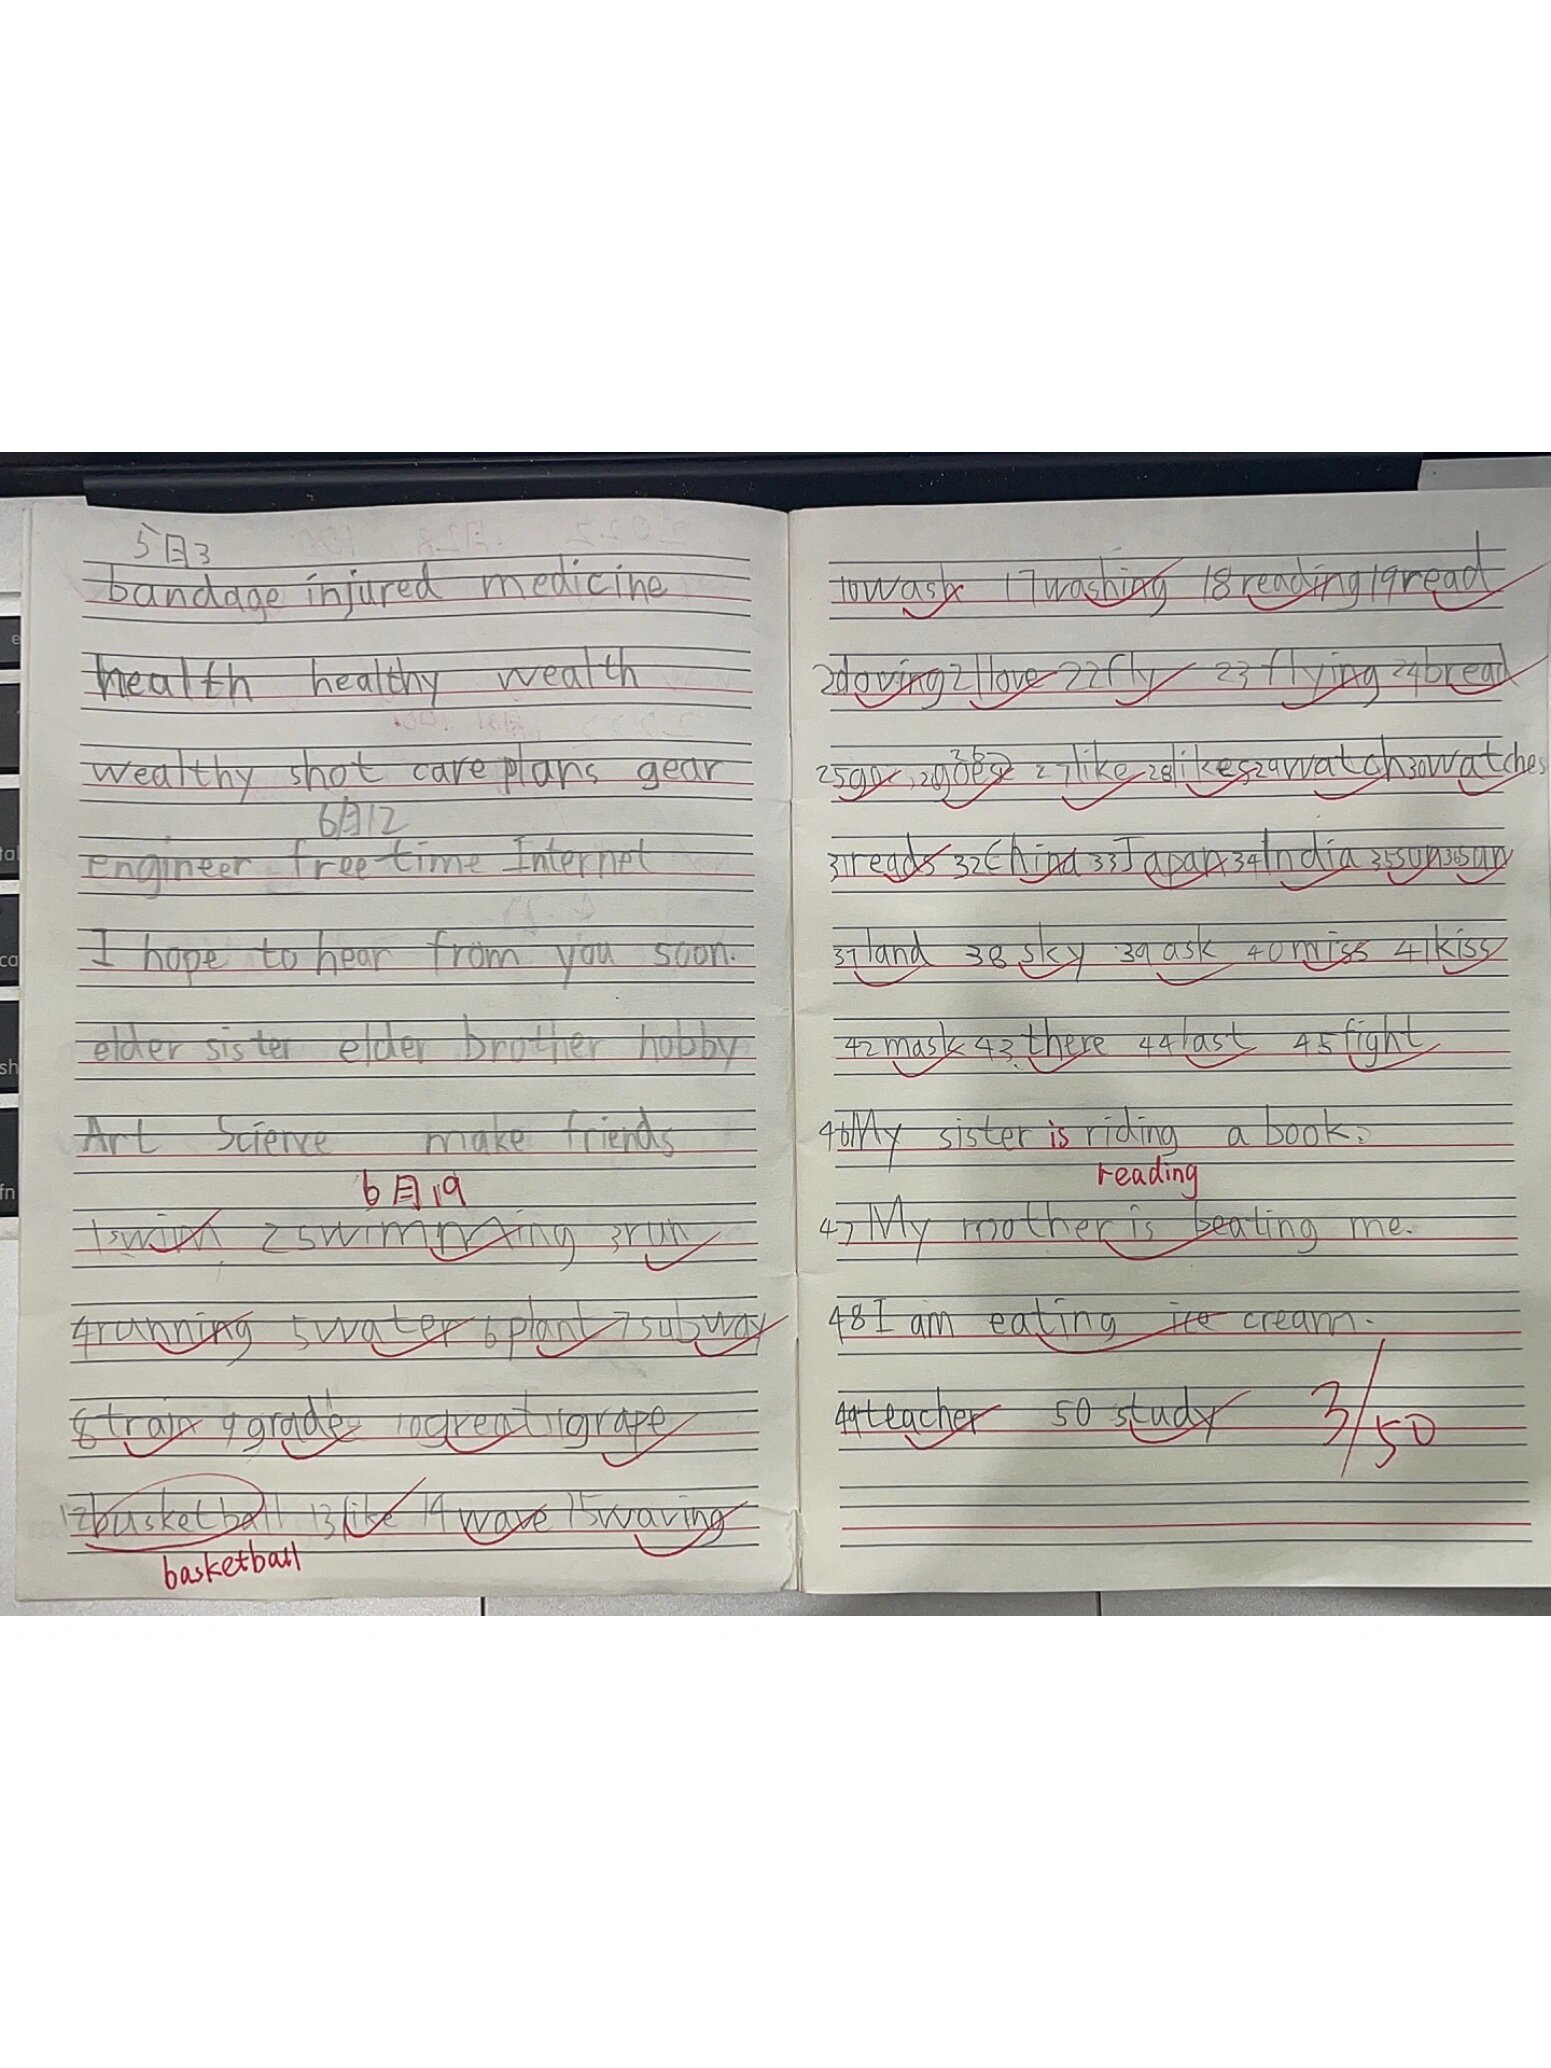 5月3
bandage injured medicine
health healthy wealth
wealthy shot care plans gear
6月12
engineer free time Internet
I hope to hear from you soon.
elder sister elder brother hobby
Art Science make friends
6月19
1swim 2swimming 3run
4running 5water 6plant 7subway
8train 9grade 10great 11grape
12busketball 13like 14wave 15waving
basketball
16wash 17washing 18reading 19read
20loving 21love 22fly 23flying 24bread
25go 26goes 27like 28likes 29watch 30watches
31reads 32China 33Japan 34India 35son 36sun
37land 38sky 39ask 40miss 41kiss
42mask 43there 44last 45fight
46My sister is riding a book.
reading
47My mother is beating me.
48I am eating ice cream.
49teacher 50study 3/50